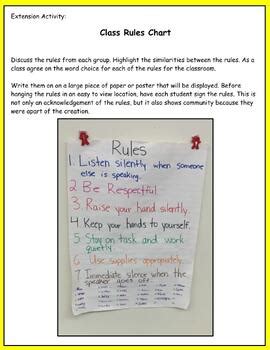 Extension Activity:
Class Rules Chart
Discuss the rules from each group. Highlight the similarities between the rules. As a
class agree on the word choice for each of the rules for the classroom.
Write them on on a large piece of paper or poster that will be displayed. Before
hanging the rules in an easy to view location, have each student sign the rules. This is
not only an acknowledgement of the rules, but it also shows community because they
were apart of the creation.
Rules
1. Listen silently when someone
else is speaking.
2 Be Respectful
3. Raise your hand silently.
4. Keep your hands to yourself.
5. Stay on task and work
quietly.
6. Use supplies appropriately.
7. Immediate silence when the
speaker goes off.